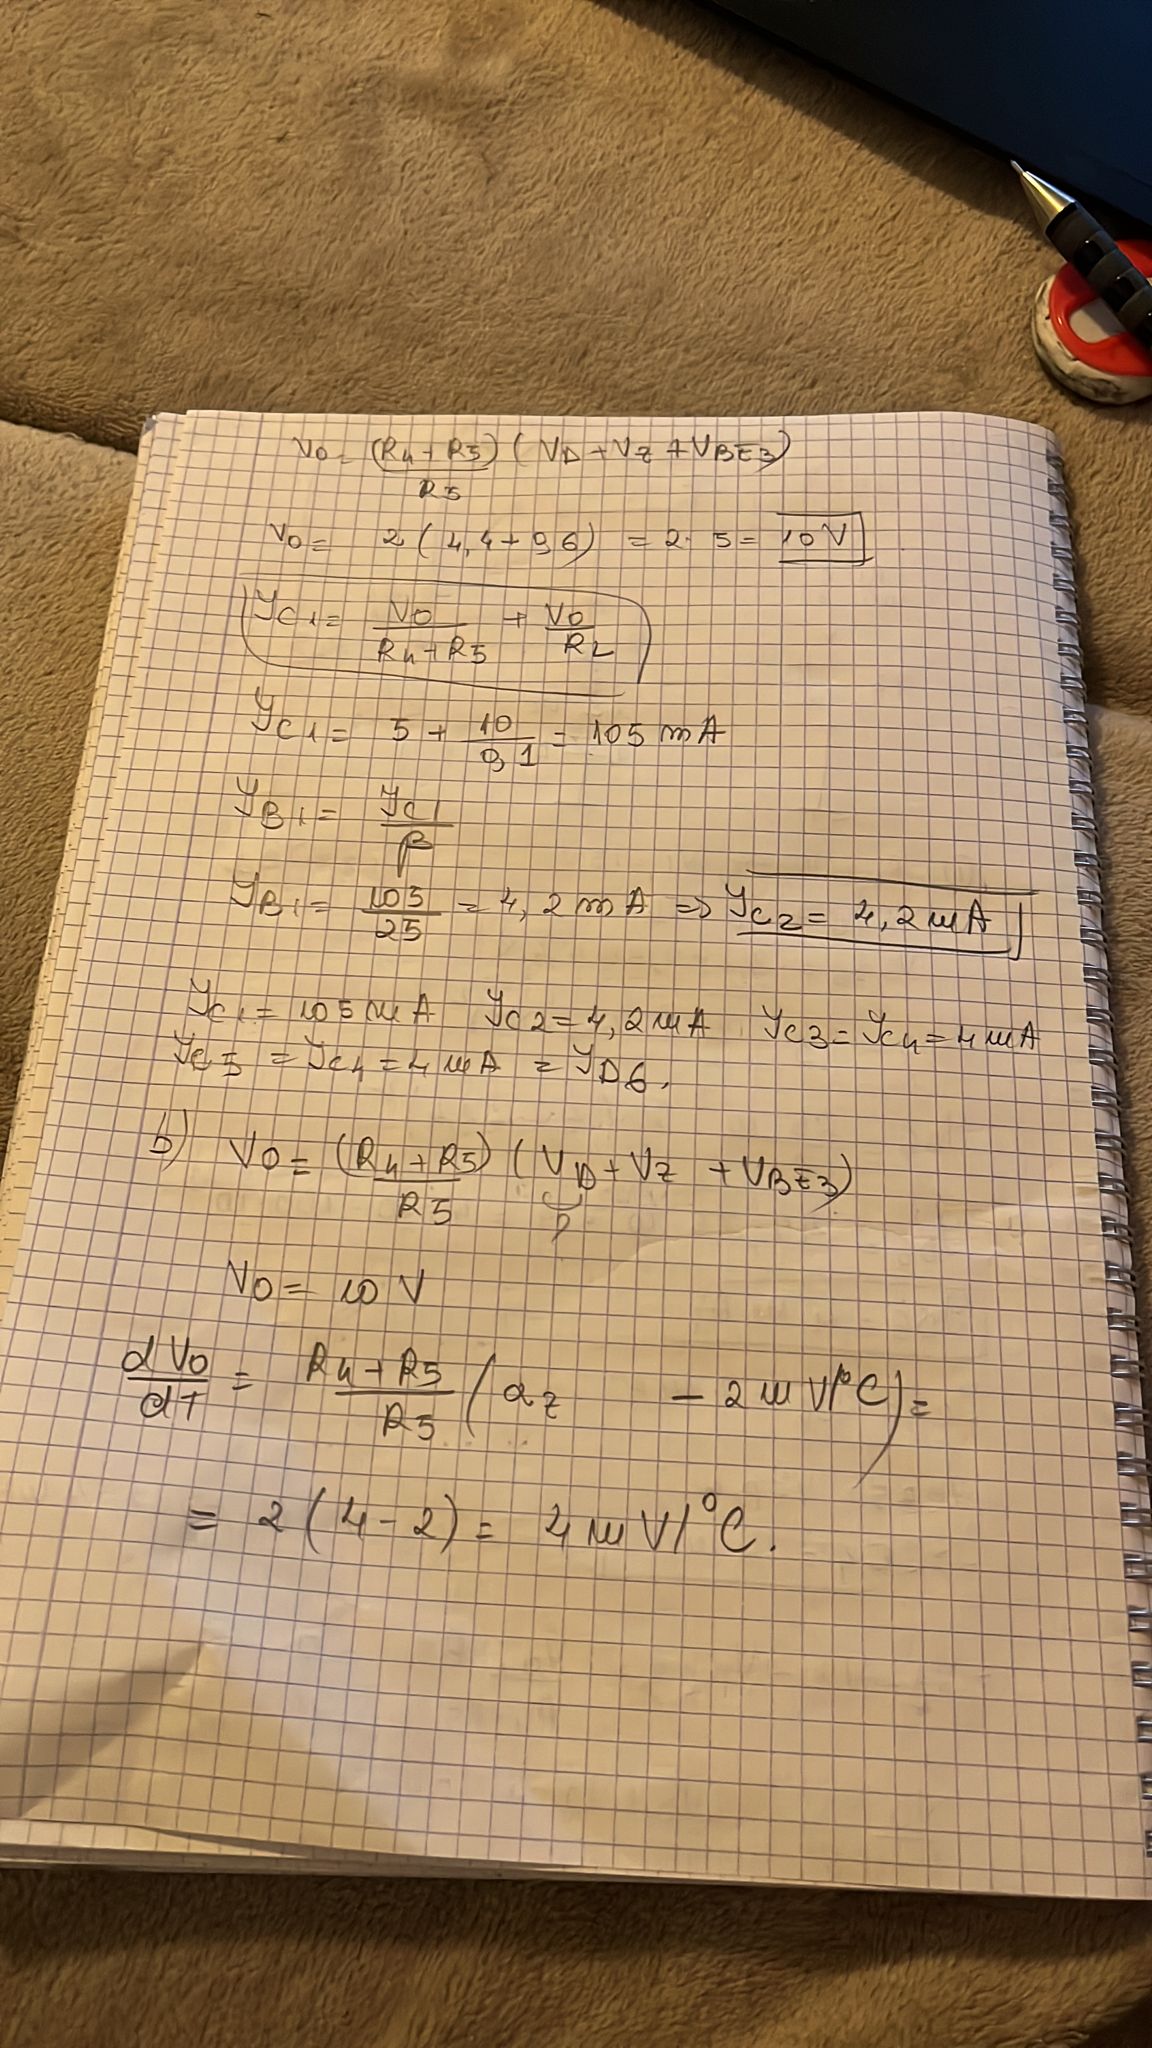 V0 = (R4+R5)/R5 (VD + VZ + VBE3)
V0 = 2 (4,4 + 0,6) = 2·5 = 10V
IC1 = V0/(R4+R5) + V0/RL
IC1 = 5 + 10/0,1 = 105 mA
IB1 = IC1/β
IB1 = 105/25 = 4,2 mA ⇒ IC2 = 4,2 mA
IC1 = 105 mA IC2 = 4,2 mA IC3 = IC4 = 4 mA
IC5 = IC4 = 4 mA = ID6.
b) V0 = (R4+R5)/R5 (VD + VZ + VBE3)
V0 = 10 V
dV0/dT = (R4+R5)/R5 (αZ - 2 mV/°C) =
= 2 (4-2) = 4 mV/°C.